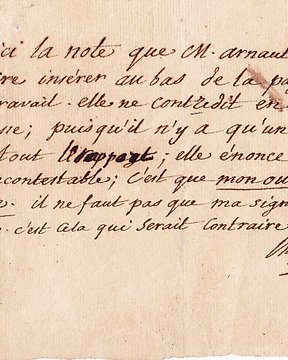 ici la note que M. arnaul
re insérer au bas de la pa
ravail. elle ne contredit en
ne; puisqu'il n'y a qu'un
tout le rapport; elle énonce
contestable; c'est que mon ou
il ne faut pas que ma sign
c'est cela qui serait contraire